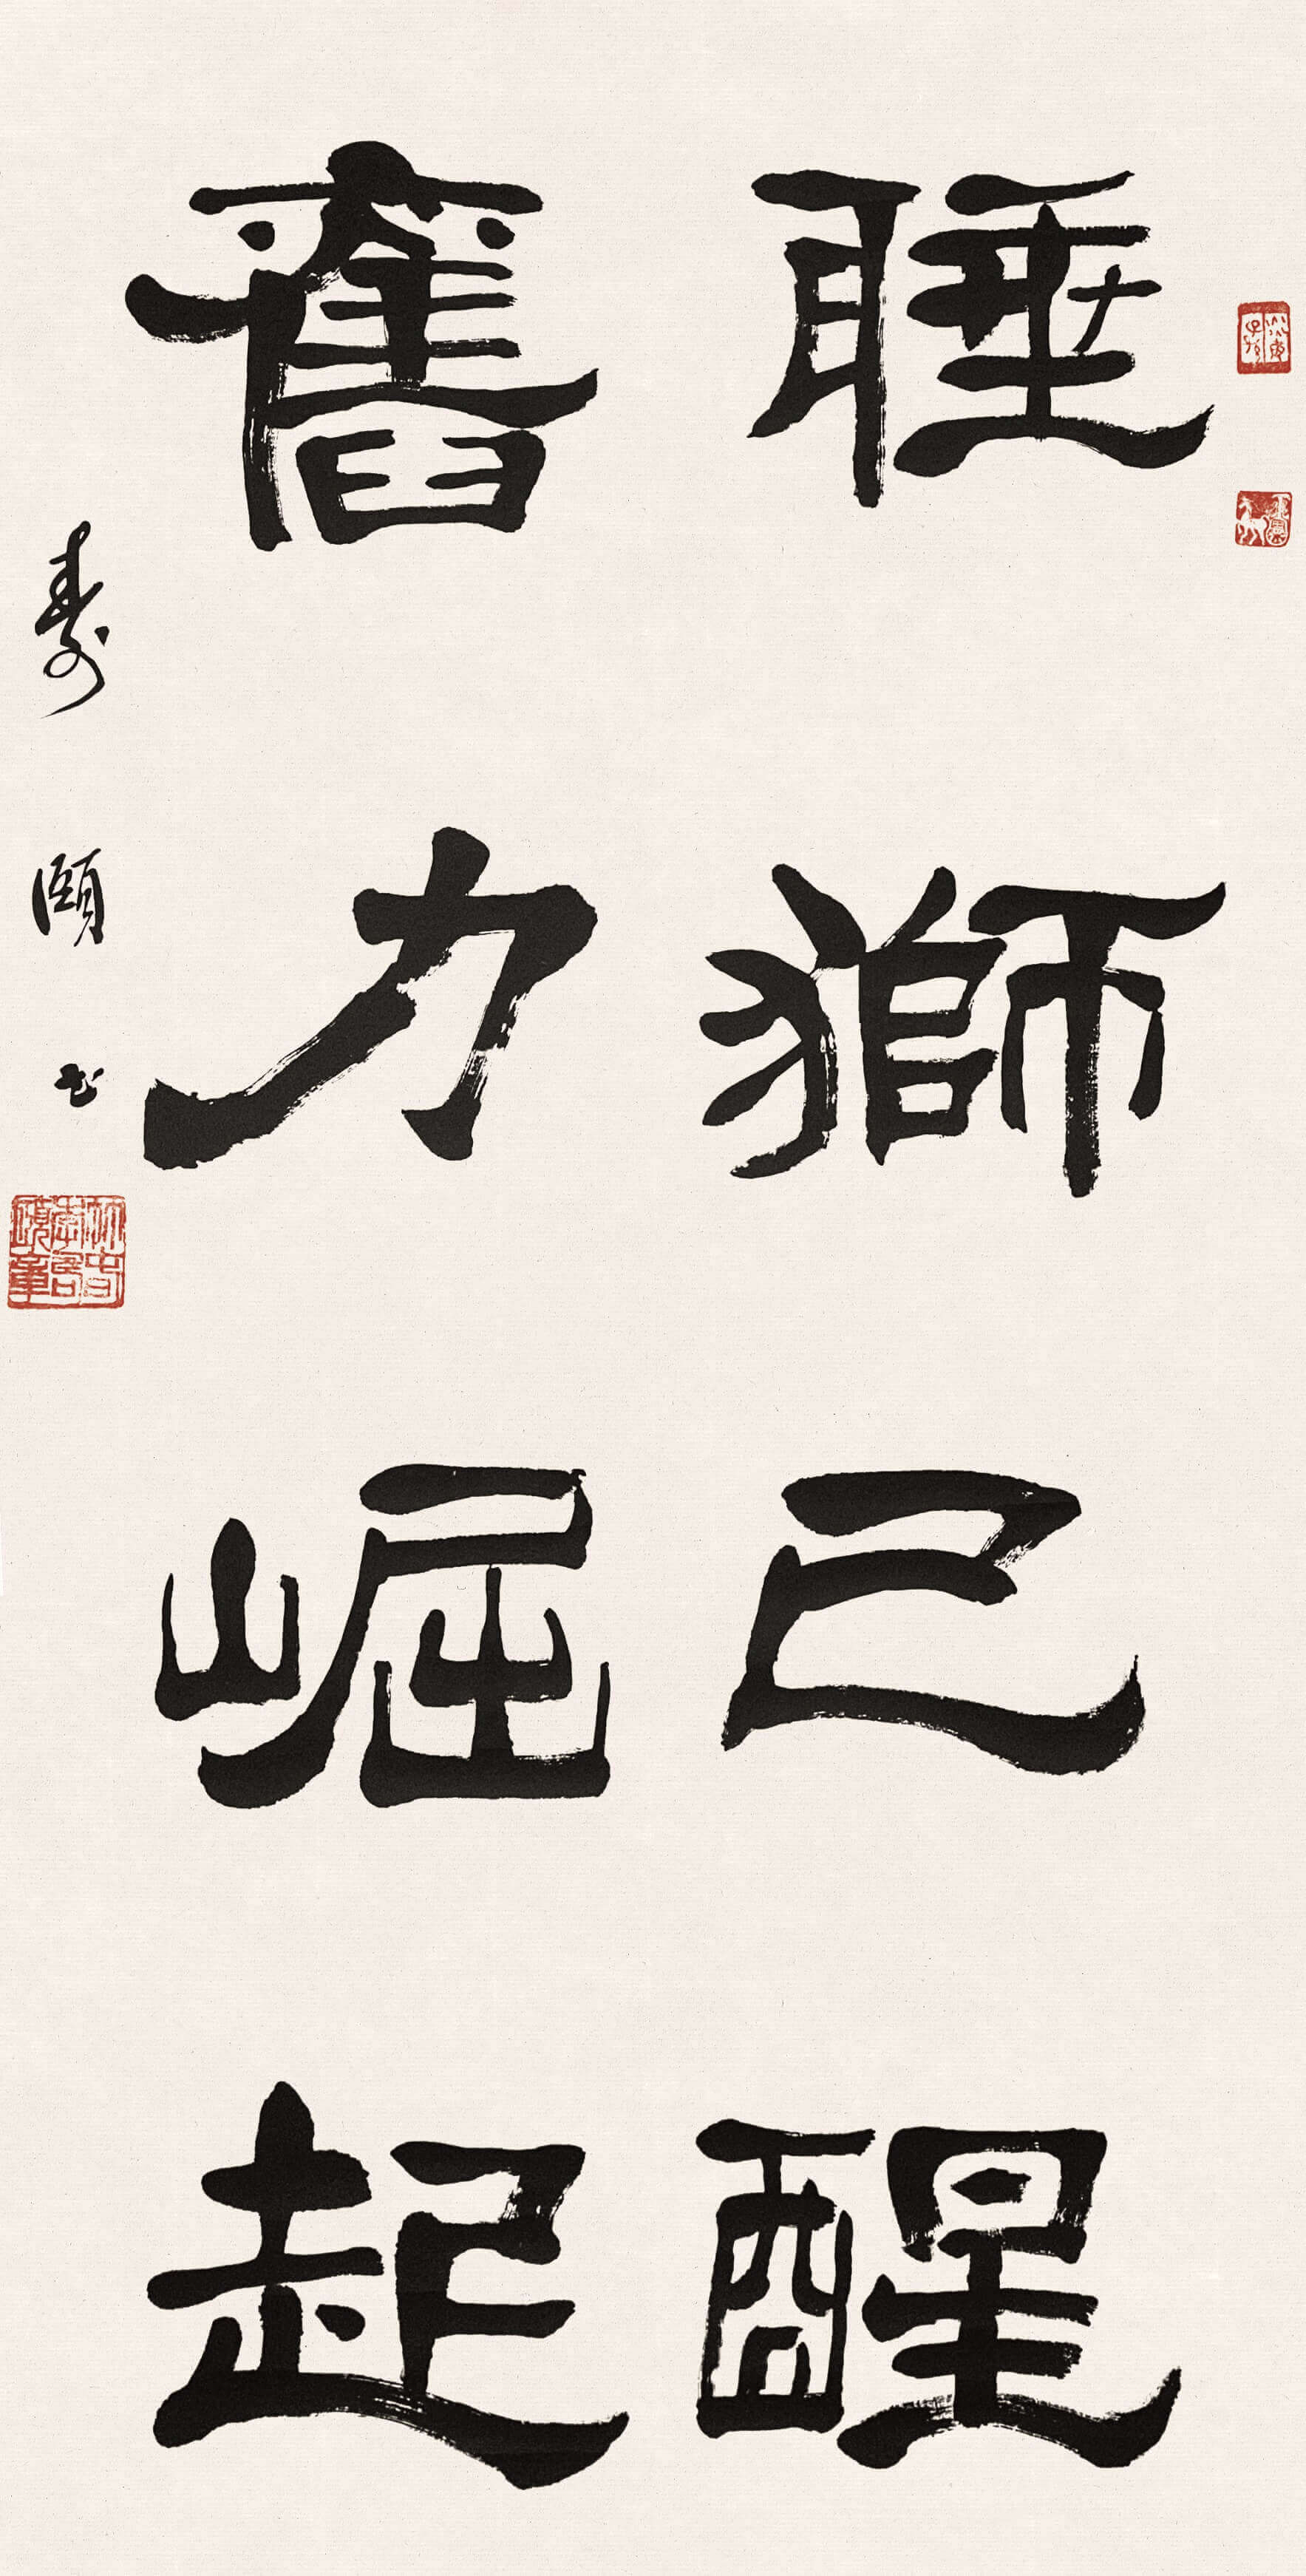 睡獅已醒
奮力崛起
壽頤書